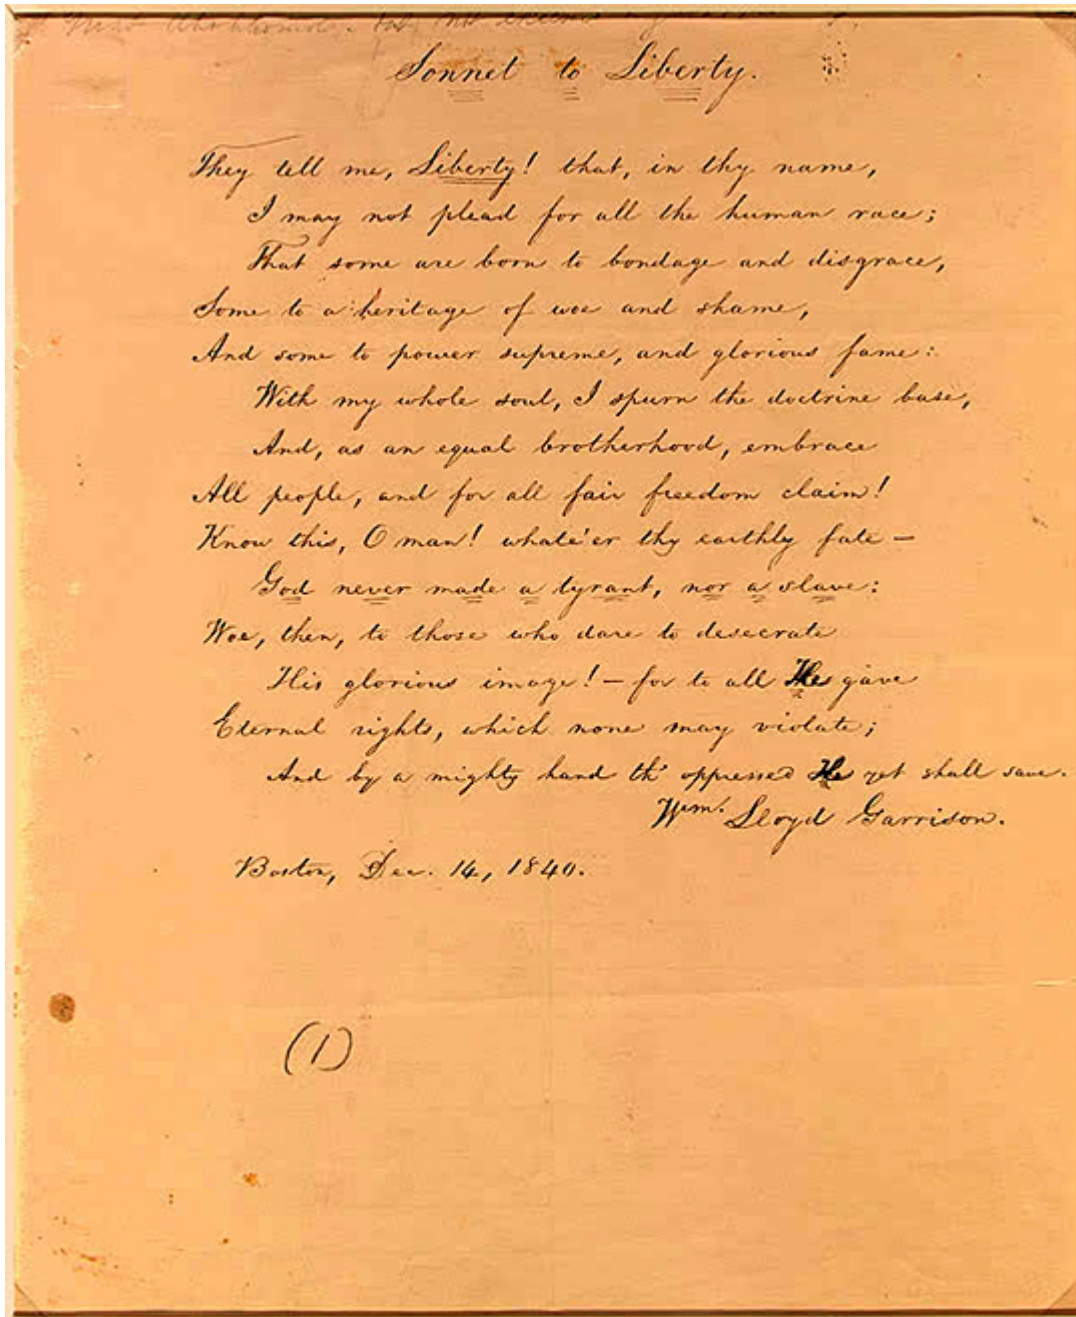 Sonnet to Liberty.
They tell me, Liberty! that, in thy name,
I may not plead for all the human race;
That some are born to bondage and disgrace,
Some to a heritage of woe and shame,
And some to power supreme, and glorious fame:
With my whole soul, I spurn the doctrine base,
And, as an equal brotherhood, embrace
All people, and for all fair freedom claim!
Know this, O man! whate'er thy earthly fate —
God never made a tyrant, nor a slave:
Woe, then, to those who dare to desecrate
His glorious image! — for to all He gave
Eternal rights, which none may violate;
And by a mighty hand th' oppressed He yet shall save.
Wm. Lloyd Garrison.
Boston, Dec. 14, 1840.
(1)